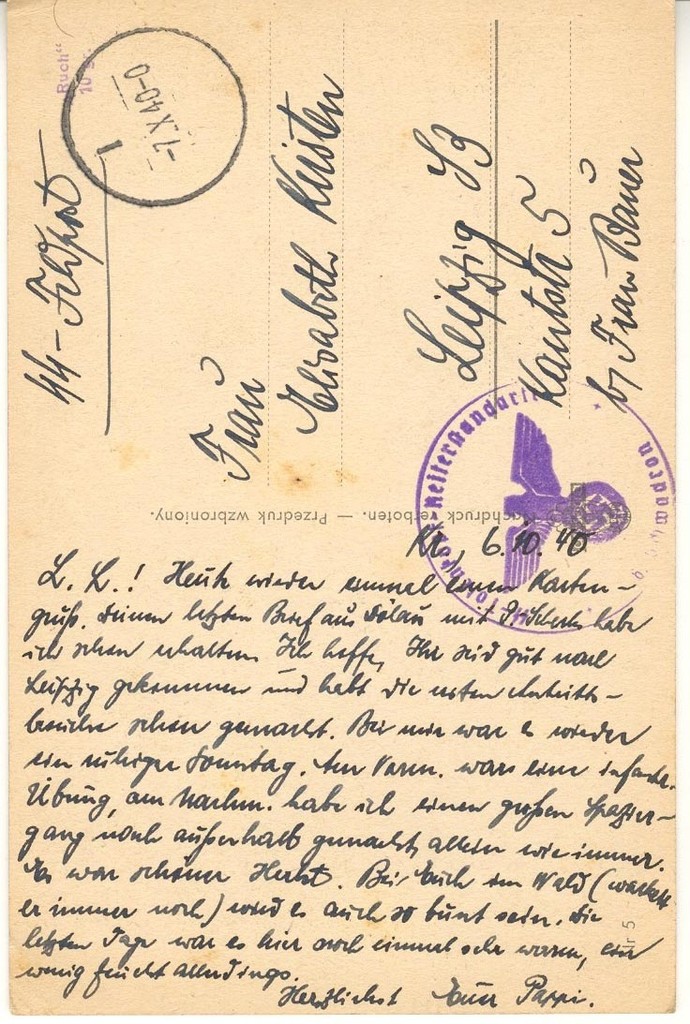 SS-Feldpost
-7.X.40-0
Ruch"
10 gr.
Frau
Elisabeth Kersten
Leipzig S3
Kantstr 5
b/ Frau Bauer
Nachdruck verboten. — Przedruk wzbroniony.
Kr., 6.10.40
L. L.! Heute wieder einmal einen Karten-
gruß. Deinen letzten Brief aus Dölau mit habe
ich schon erhalten. Ich hoffe, Ihr seid gut nach
Leipzig gekommen und habt die ersten Antritts-
besuche schon gemacht. Bei mir war es wieder
ein ruhiger Sonntag. Am Vorm. wars eine
Übung, am Nachm. habe ich einen großen Spazier-
gang nach außerhalb gemacht, allein wie immer.
Es war schöner Herbst. Bei Euch im Wald (
er immer noch) wird es auch so bunt sein. Die
letzten Tage war es hier noch einmal sehr warm, ein
wenig feucht allerdings.
Herzlichst Euer Pappi.